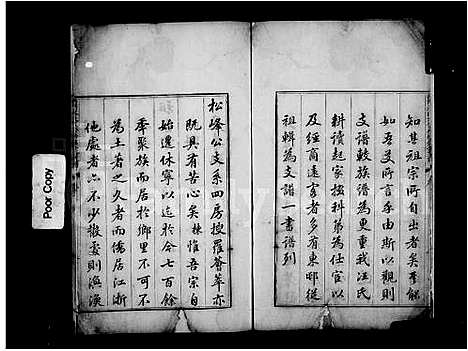 知其祖宗所自出者矣奉解
如吾爱所言孚由斯以觀則
支譜較族譜為更重我汪氏
耕讀起家掇科第為仕宦以
及經商遠客者多有東邨從
祖輯為支譜一書譜列
松峰公支系四房搜羅薈萃亦
既具有苦心矣秣惟吾宗自
始遷休寧以迄於今七百餘
年聚族而居於鄉里不可不
為土著之久者而僑居江浙
他處者亦不少散處則渙渙
Poor Copy